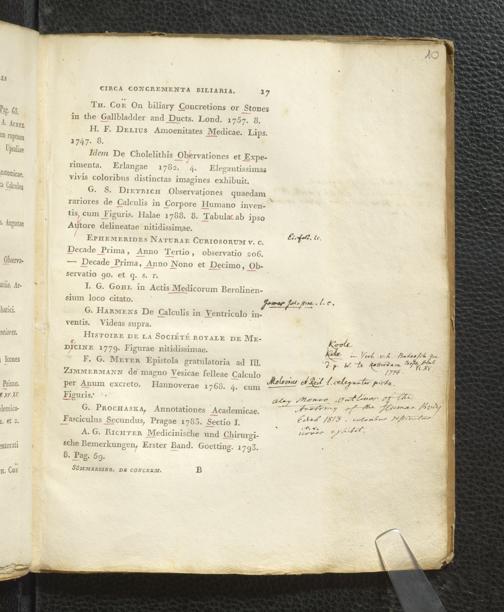 10
CIRCA CONCREMENTA BILIARIA. 17
TH. COE On biliary Concretions or Stones
in the Gallbladder and Ducts. Lond. 1757. 8.
H. F. DELIUS Amoenitates Medicae. Lips.
1747. 8.
Idem De Cholelithis Observationes et Expe-
rimenta. Erlangae 1782. 4. Elegantissimas
vivis coloribus distinctas imagines exhibuit.
G. S. DIETRICH Observationes quaedam
rariores de Calculis in Corpore Humano inven-
tis, cum Figuris. Halae 1788. 8. Tabulae ab ipso
Autore delineatae nitidissimae.
EPHEMERIDES NATURAE CURIOSORUM v. c.
Decade Prima, Anno Tertio, observatio 206.
— Decade Prima, Anno Nono et Decimo, Ob-
servatio 90. et q. s. r.
I. G. GOHL in Actis Medicorum Berolinen-
sium loco citato.
G. HARMENS De Calculis in Ventriculo in-
ventis. Videas supra.
HISTOIRE DE LA SOCIÉTÉ ROYALE DE ME-
DICINE 1779. Figurae nitidissimae.
F. G. MEYER Epistola gratulatoria ad III.
ZIMMERMANN de magno Vesicae felleae Calculo
per Anum excreto. Hannoverae 1768. 4. cum
Figuris.
G. PROCHASKA, Annotationes Academicae.
Fasciculus Secundus, Pragae 1783. Sectio I.
A. G. RICHTER Medicinische und Chirurgi-
sche Bemerkungen, Erster Band. Goetting. 1793.
8. Pag. 69.
SÖMMERRING. DE CONCREM. B
James Johnstone. l. c.
Kode
in Verh. v. h. Bataafsch gen
1798
elegantes pictae.
Alex Monro outlines of the
Anatomy of the Human Body
Edinb 1813.